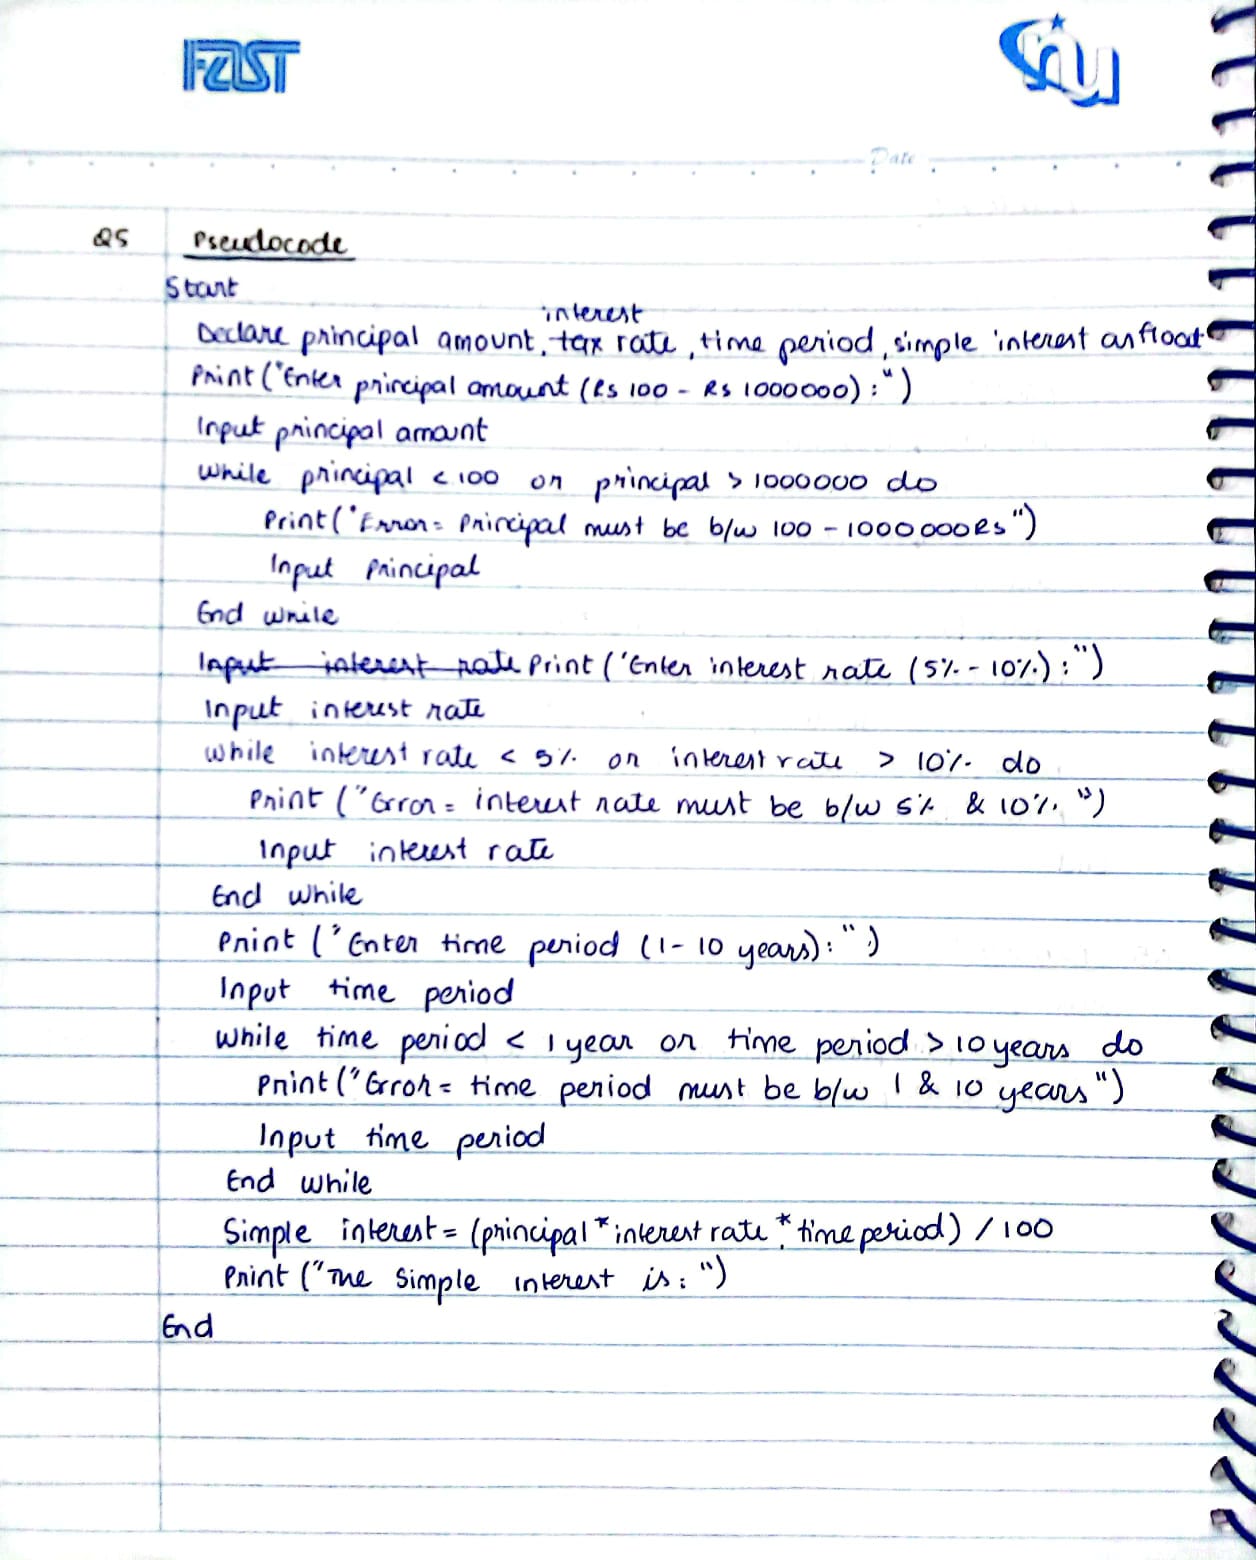 FAST
nu
Date
Q5 Pseudocode
Start
interest
Declare principal amount, tax rate, time period, simple interest as float
Print ("Enter principal amount (Rs 100 - Rs 1000000) : ")
Input principal amount
While principal < 100 or principal > 1000000 do
Print ("Error = Principal must be b/w 100 - 1000000Rs")
Input Principal
End while
Input interest rate Print ("Enter interest rate (5% - 10%) : ")
Input interest rate
While interest rate < 5% or interest rate > 10% do
Print ("Error = interest rate must be b/w 5% & 10% ")
Input interest rate
End while
Print ("Enter time period (1 - 10 years) : ")
Input time period
While time period < 1 year or time period > 10 years do
Print ("Error = time period must be b/w 1 & 10 years")
Input time period
End while
Simple interest = (principal * interest rate * time period) / 100
Print ("The Simple interest is : ")
End